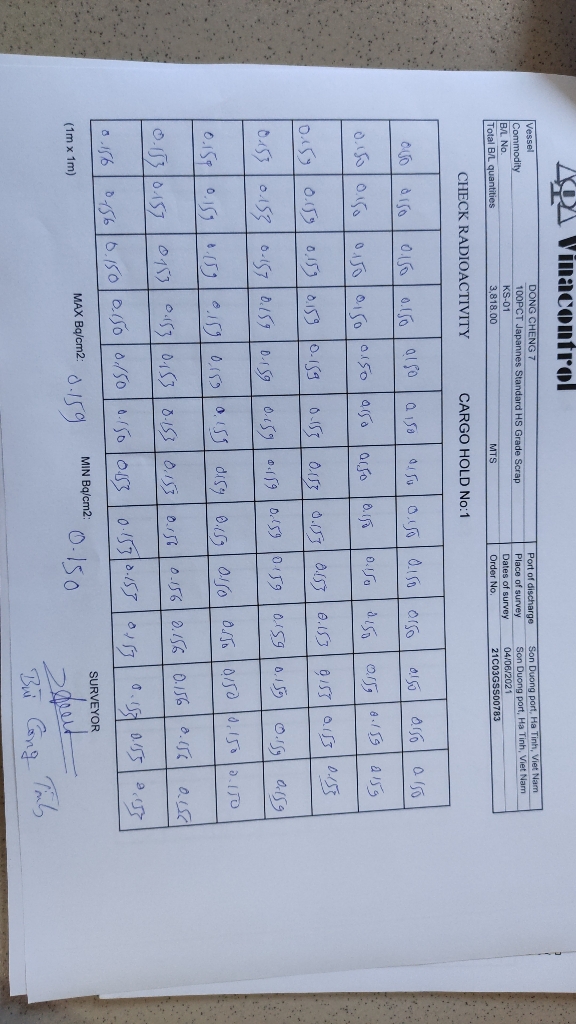 Vinacontrol
Vessel DONG CHENG 7 Port of discharge Son Duong port, Ha Tinh, Viet Nam
Commodity 100PCT Japannes Standard HS Grade Scrap Place of survey Son Duong port, Ha Tinh, Viet Nam
B/L No. KS-01 Dates of survey 04/06/2021
Total B/L quantities 3,818.00 MTS Order No. 21C03GSS00783
CHECK RADIOACTIVITY CARGO HOLD No:1
0.150 0.150 0.150 0.150 0.150 0.150 0.150 0.150 0.150 0.150 0.150 0.150 0.150
0.150 0.150 0.150 0.150 0.150 0.150 0.150 0.150 0.150 0.150 0.159 0.159 0.159
0.159 0.159 0.159 0.159 0.159 0.153 0.153 0.153 0.153 0.153 0.153 0.153 0.153
0.153 0.153 0.153 0.159 0.159 0.159 0.159 0.159 0.159 0.159 0.159 0.159 0.159
0.159 0.159 0.159 0.159 0.159 0.153 0.159 0.159 0.150 0.150 0.150 0.150 0.150
0.153 0.153 0.153 0.153 0.153 0.153 0.153 0.156 0.156 0.156 0.156 0.156 0.156
0.156 0.156 0.150 0.150 0.150 0.150 0.153 0.153 0.153 0.153 0.153 0.153 0.153
(1m x 1m) MAX Bq/cm2: 0.159 MIN Bq/cm2: 0.150 SURVEYOR
Bùi Công Tính